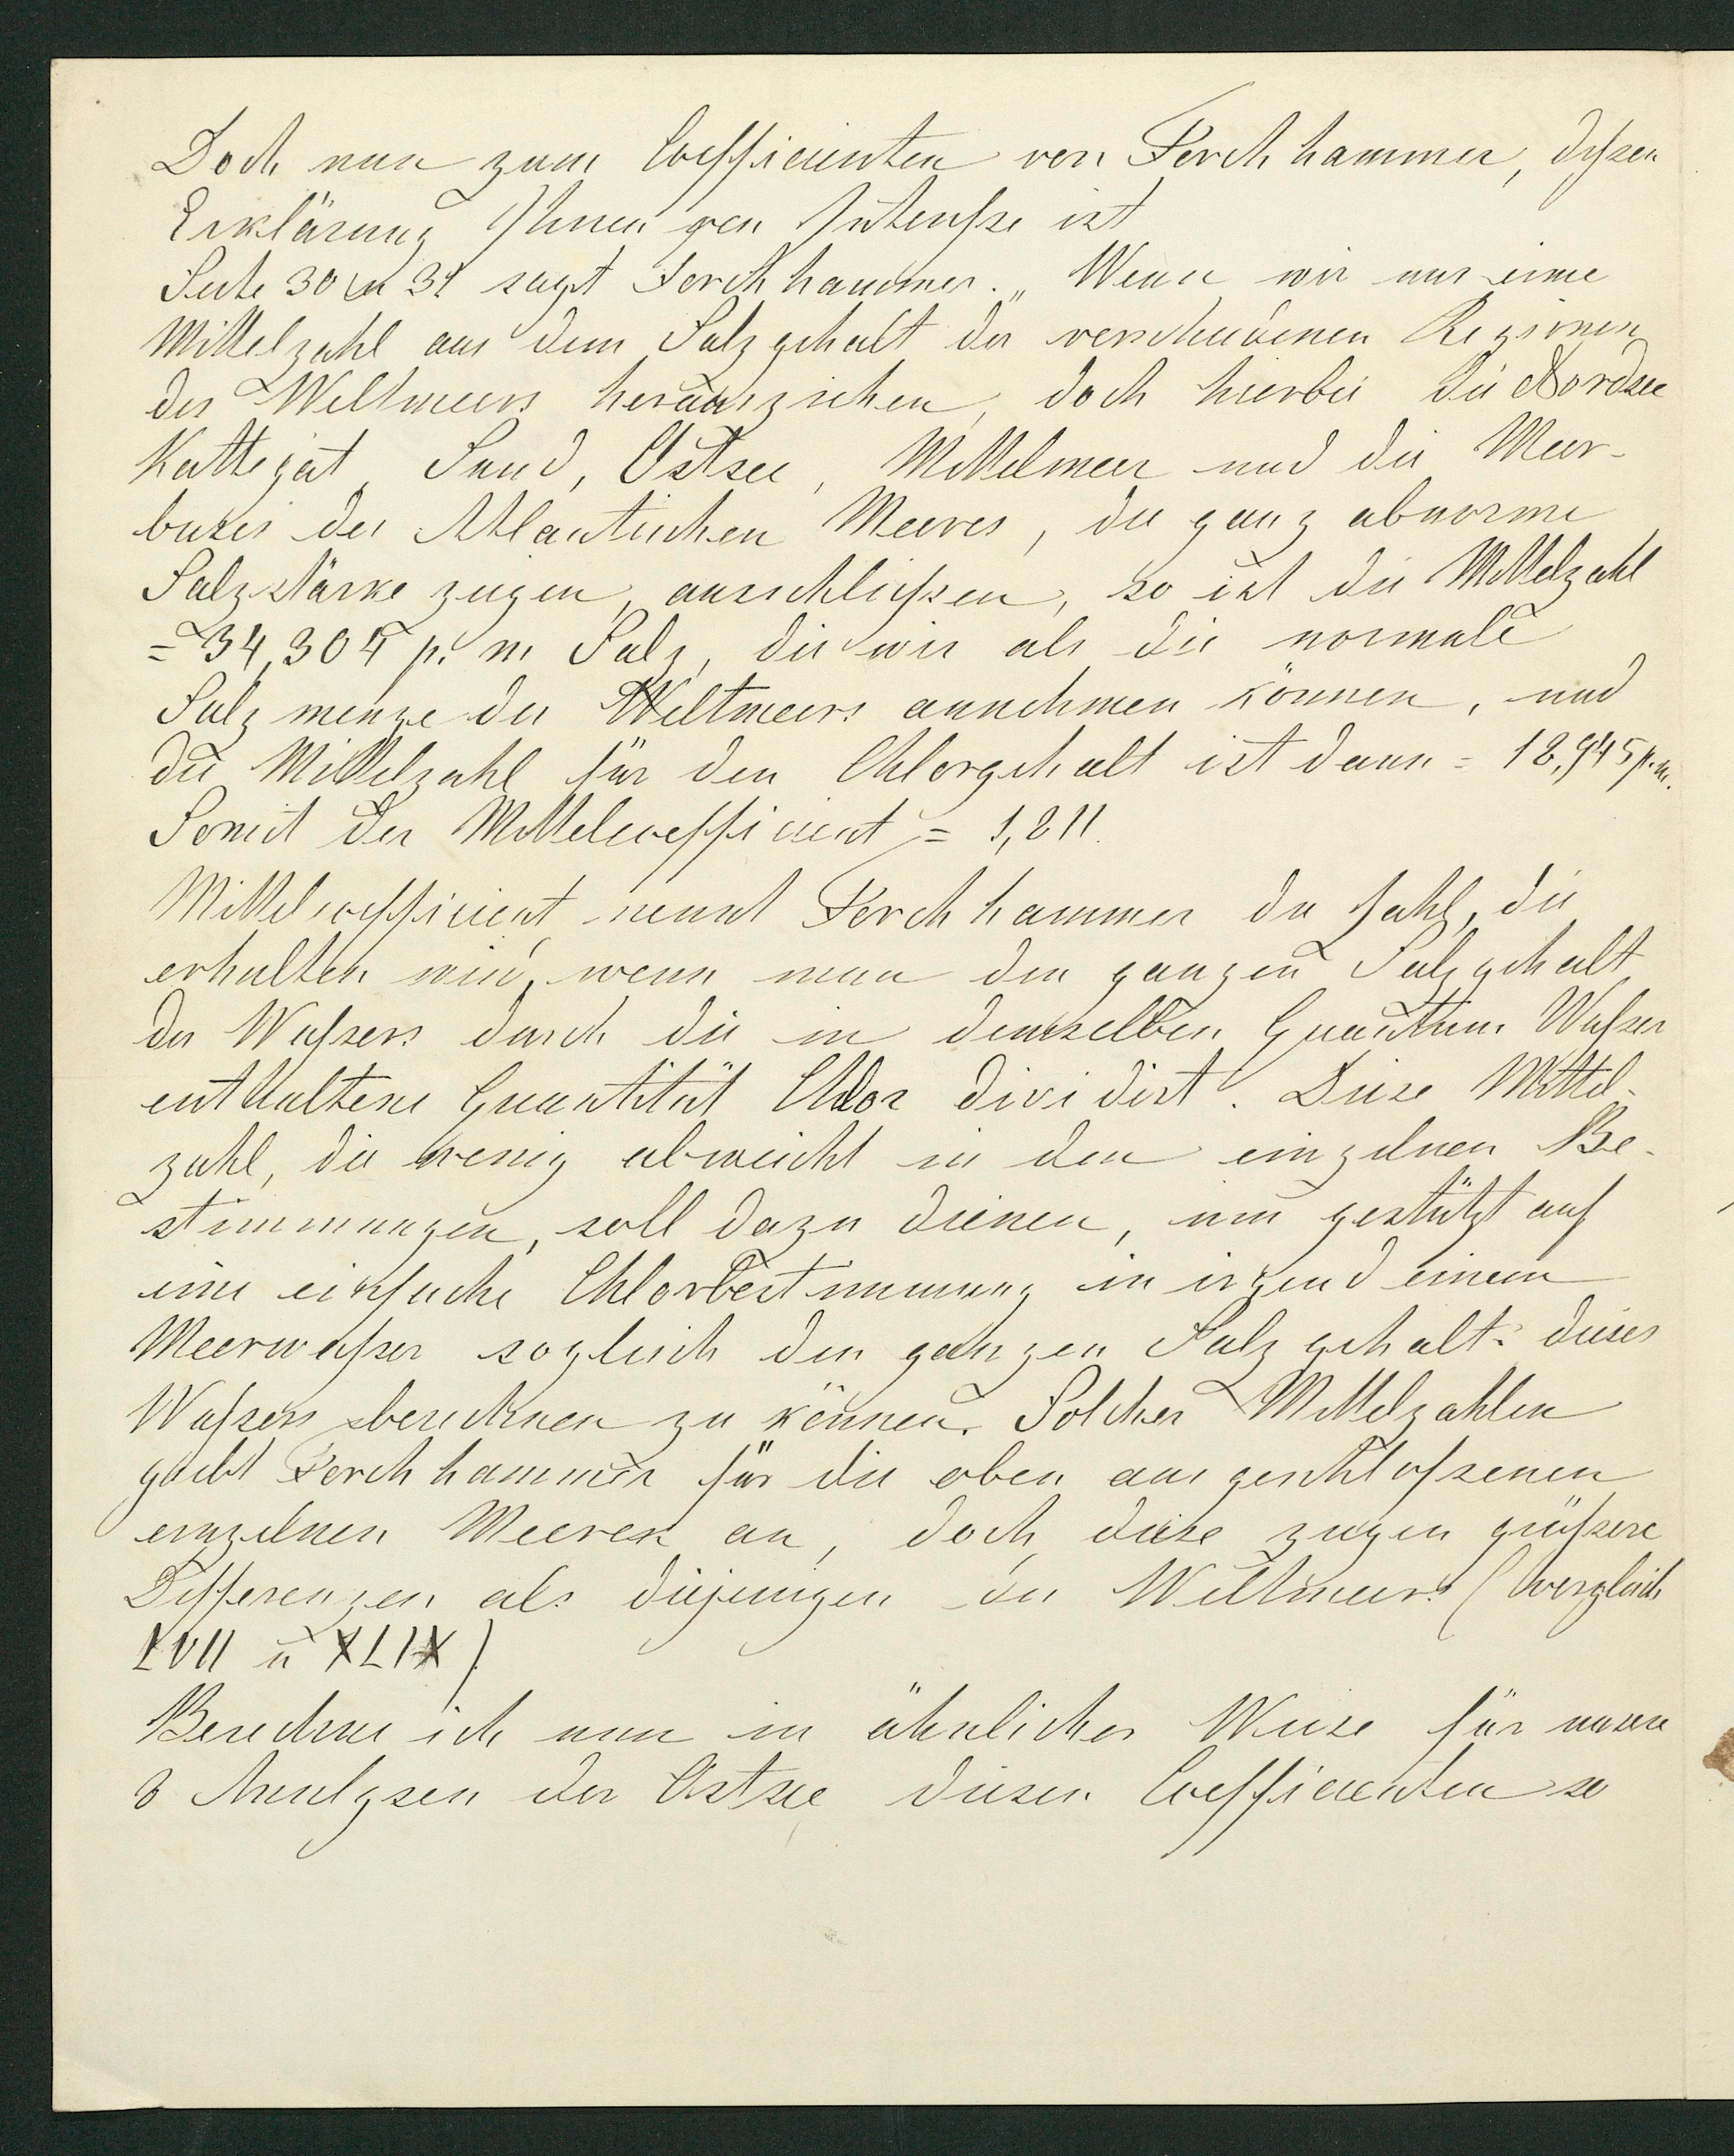 Doch nun zum Coefficienten von Forchhammer, deſsen
Erklärung Ihnen von Intereſse ist
Seite 30 u 31 sagt Forchhammer. „Wenn wir nur eine
Mittelzahl aus dem Salzgehalt der verschiedenen Regionen
des Weltmeers herausziehen, doch hierbei die Nordsee
Kattegat, Sund, Ostsee, Mittelmeer und die Meer-
busen des Atlantischen Meeres, die ganz abnorme
Salzstärke zeigen, ausschließen, so ist die Mittelzahl
= 34,304 p. m Salz, die wir als die normale
Salzmenge des Weltmeers annehmen können, und
die Mittelzahl für den Chlorgehalt ist dann = 18,945 p. m.
Somit der Mittelcoefficient = 1,811.
Mittelcoefficient nennt Forchhammer die Zahl, die
erhalten wird, wenn man den ganzen Salzgehalt
des Waſsers durch die in demselben Quantum Waſser
enthaltene Quantität Chlor dividirt. Diese Mittel-
zahl, die wenig abweicht in den einzelnen Be-
stimmungen, soll dazu dienen, um gestützt auf
eine einfache Chlorbestimmung in irgend einem
Meerwaſser sogleich den ganzen Salzgehalt dieses
Waſsers berechnen zu können. Solcher Mittelzahlen
giebt Forchhammer für die oben ausgeschloſsenen
einzelnen Meeren an, doch diese zeigen größere
Differenzen als diejenigen des Weltmeers (vergleich
LVII u XLIX)
Berechne ich nun in ähnlicher Weise für unsere
8 Analysen der Ostsee diesen Coefficienten so